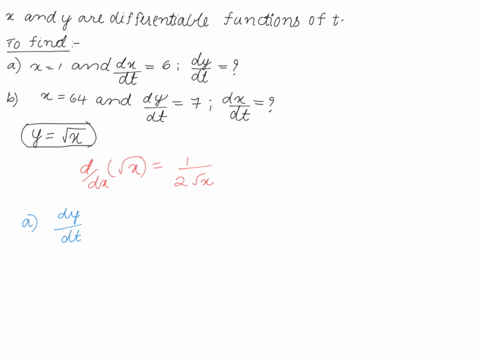 x and y are differentiable functions of t.
To find :-
a) x = 1 and dx/dt = 6 ; dy/dt = ?
b) x = 64 and dy/dt = 7 ; dx/dt = ?
y = √x
d/dx (√x) = 1/2√x
a) dy/dt